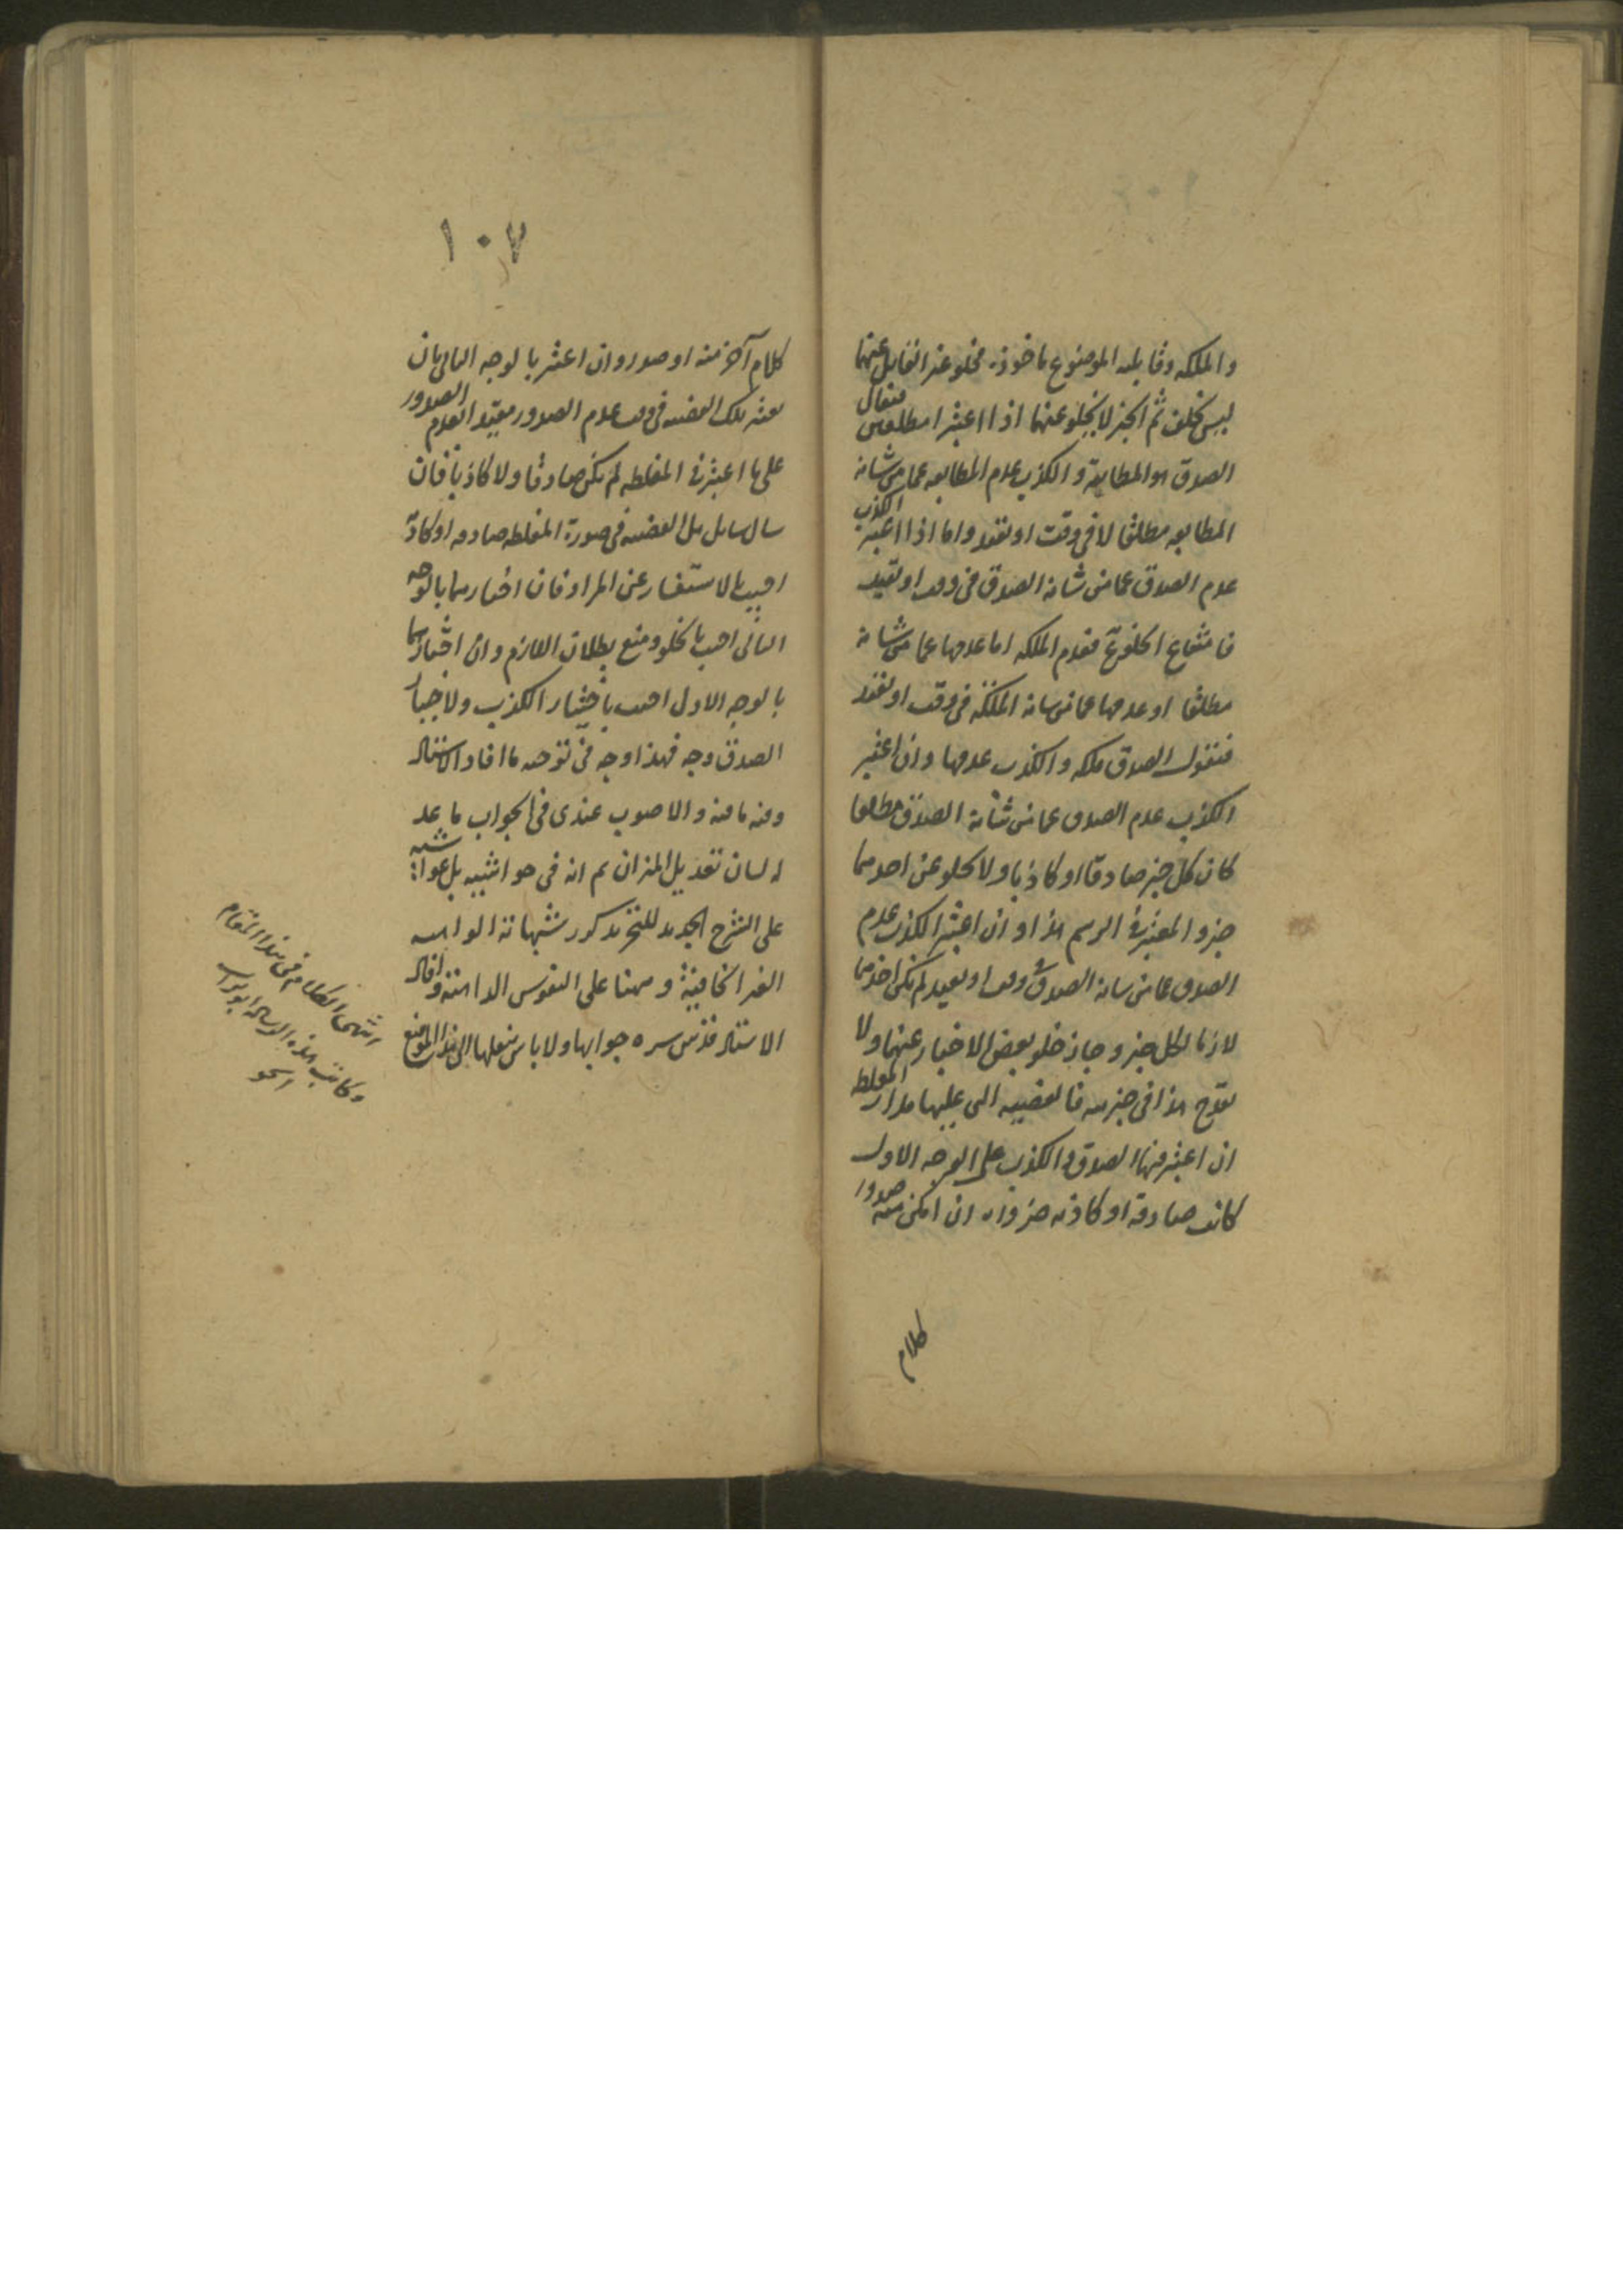 والملكه وقابليه الموضوع ماخوذه فخلو غير القابل عنهما
ليس بخلف ثم الخبر لا يخلو عنهما اذا اعتبرا مطلقين فيقال
الصدق هو المطابقة والكذب عدم المطابقه عما من شانه
المطابقه مطلقا لا فى وقت او بقيد واما اذا اعتبر الكذب
عدم الصدق عما من شانه الصدق فى وقت او بقيد
فامتناع الخلو فعدم الملكه اما عدمها عما من شانه
مطلقا او عدمها عما من شانه الملكة فى وقت او بقيد
فنقول الصدق ملكه والكذب عدمها وان اعتبر
الكذب عدم الصدق عما من شانه الصدق مطلقا
كان كل خبر صادقا او كاذبا ولا يخلو عن احدهما
خبر والمعتبر فى الرسم هذا وان اعتبر الكذب عدم
الصدق عما من شانه الصدق فى وقت او بقيد لم يكن احدهما
لازما لكل خبر وجاز خلو بعض الاخبار عنهما ولا
يقدح هذا فى خبريته فالقضيه التى عليها مدار المغلطه
ان اعتبر فيها الصدق والكذب على الوجه الاول
كانت صادقة او كاذبه ضروره ان امكن صدور
كلام
١٠٧
كلام آخر منه او صدر وان اعتبر بالوجه الثانى بان
يعتبر تلك القضيه فى وقت عدم الصدور مقيد العدم الصدور
على ما اعتبر فى المغلطه لم يكن صادقا ولا كاذبا فان
سال سائل هل القضيه فى صورة المغلطه صادقه او كاذبة
اجيب بالاستفسار عن المراد فان اختارهما بالوجه
الثانى اجيب بالخلو ومنع بطلان اللازم وان اختارهما
بالوجه الاول اجيب باختيار الكذب ولاختيار
الصدق وجه فهذا وجه فى توجيه ما افاد الاستاد
وفيه ما فيه والاصوب عندى فى الجواب ما
تعديل الميزان ثم انه فى حواشيه
على الشرح الجديد للتجريد كرر شبهاته الواهيه
الغير الخافية على النفوس وافاد
الاستاد قدس سره جوابها ولا باس بنقلها الى هذا الموضع
انتهى الكلام فى هذا المقام
وكاتب هذه الرساله ابوتراب